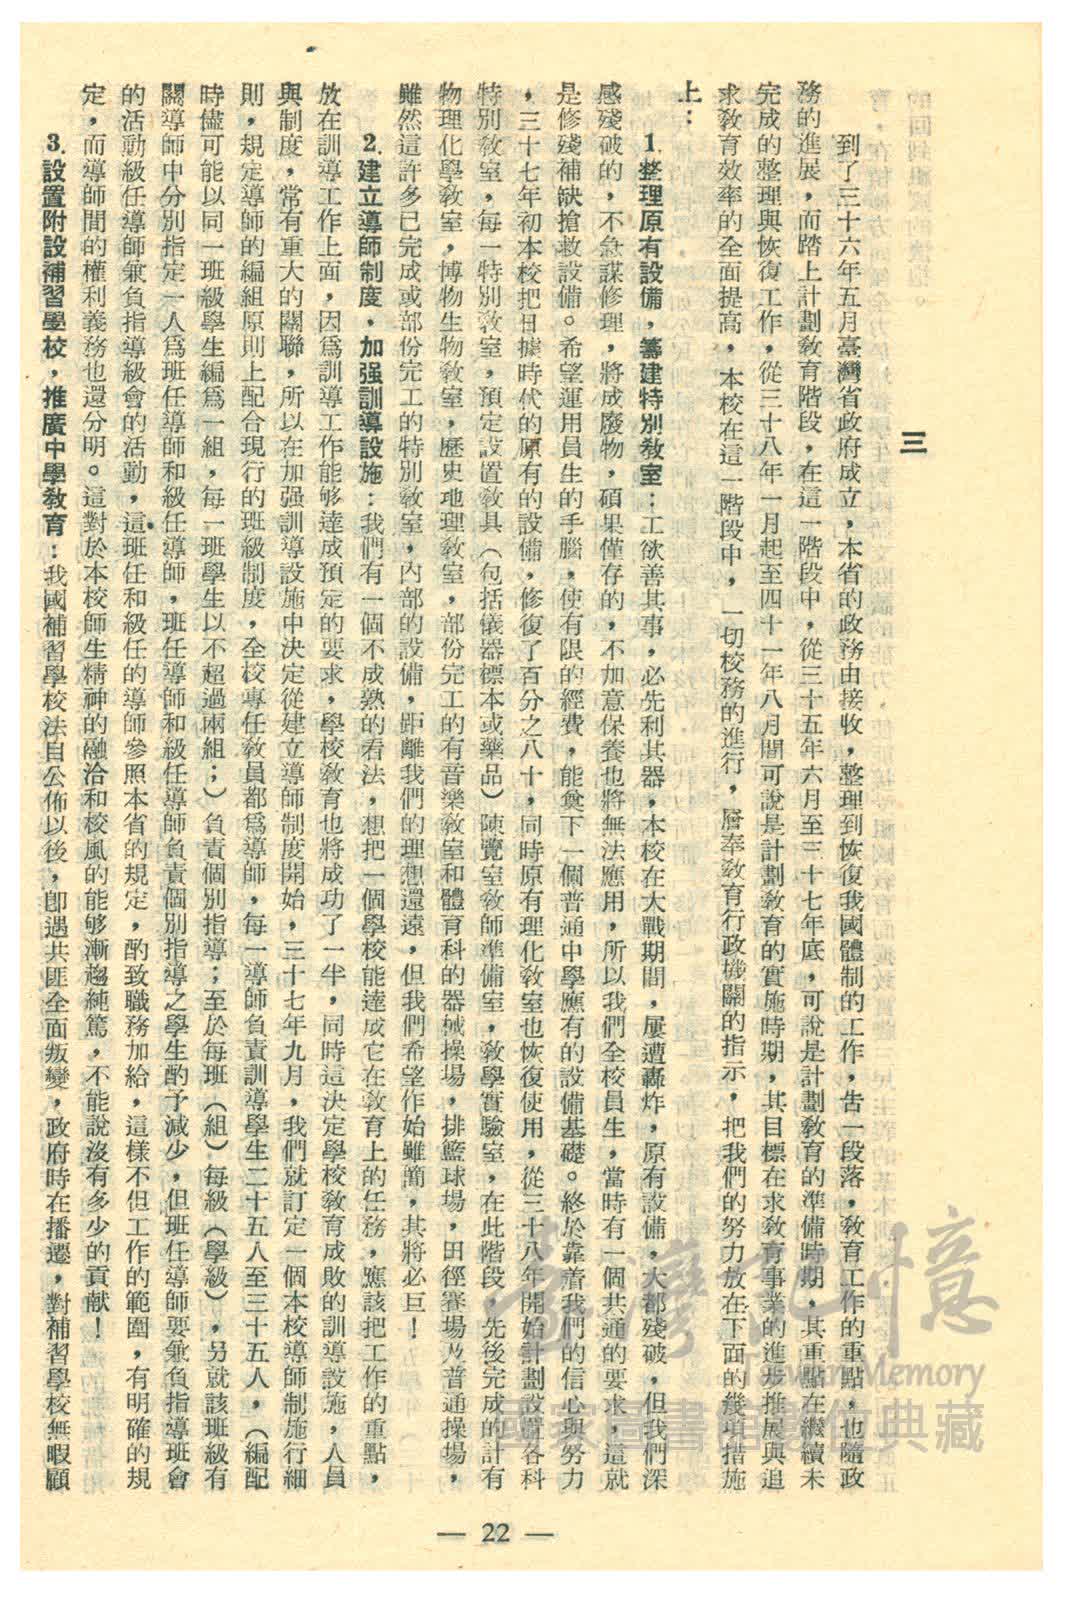 三
到了三十六年五月臺灣省政府成立，本省的政務由接收，整理到恢復我國體制的工作，告一段落，教育工作的重點，也隨政
務的進展，而踏上計劃教育階段，在這一階段中，從三十五年六月至三十七年底，可說是計劃教育的準備時期，其重點在繼續未
完成的整理與恢復工作，從三十八年一月起至四十一年八月間可說是計劃教育的實施時期，其目標在求教育事業的進步推展與追
求教育效率的全面提高，本校在這一階段中，一切校務的進行，曆奉教育行政機關的指示，把我們的努力放在下面的幾項措施
上：
1.整理原有設備，籌建特別教室：工欲善其事，必先利其器，本校在大戰期間，屢遭轟炸，原有設備，大都殘破，但我們深
感殘破的，不急謀修理，將成廢物，碩果僅存的，不加意保養也將無法應用，所以我們全校員生，當時有一個共通的要求，這就
是修殘補缺搶救設備。希望運用員生的手腦，使有限的經費，能奠下一個普通中學應有的設備基礎。終於靠着我們的信心與努力
，三十七年初本校把日據時代的原有的設備，修復了百分之八十，同時原有理化教室也恢復使用，從三十八年開始計劃設置各科
特別教室，每一特別教室，預定設置教具（包括儀器標本或藥品）陳覽室教師準備室，教學實驗室，在此階段，先後完成的計有
物理化學教室，博物生物教室，歷史地理教室，部份完工的有音樂教室和體育科的器械操場，排籃球場，田徑賽場及普通操場，
雖然這許多已完成或部份完工的特別教室，內部的設備，距離我們的理想還遠，但我們希望作始雖簡，其將必巨！
2.建立導師制度，加强訓導設施：我們有一個不成熟的看法，想把一個學校能達成它在教育上的任務，應該把工作的重點，
放在訓導工作上面，因爲訓導工作能够達成預定的要求，學校教育也將成功了一半，同時這決定學校教育成敗的訓導設施，人員
與制度，常有重大的關聯，所以在加强訓導設施中決定從建立導師制度開始，三十七年九月，我們就訂定一個本校導師制施行細
則，規定導師的編組原則上配合現行的班級制度，全校專任教員都爲導師，每一導師負責訓導學生二十五人至三十五人，（編配
時儘可能以同一班級學生編爲一組，每一班學生以不超過兩組；）負責個別指導；至於每班（組）每級（學級），另就該班級有
關導師中分別指定一人爲班任導師和級任導師，班任導師和級任導師負責個別指導之學生酌予減少，但班任導師要兼負指導班會
的活動級任導師兼負指導級會的活動，這班任和級任的導師參照本省的規定，酌致職務加給，這樣不但工作的範圍，有明確的規
定，而導師間的權利義務也還分明。這對於本校師生精神的融洽和校風的能够漸趨純篤，不能說沒有多少的貢獻！
3.設置附設補習學校，推廣中學教育：我國補習學校法自公佈以後，卽遇共匪全面叛變，政府時在播遷，對補習學校無暇顧
— 22 —
臺灣記憶
Taiwan Memory
國家圖書館數位典藏